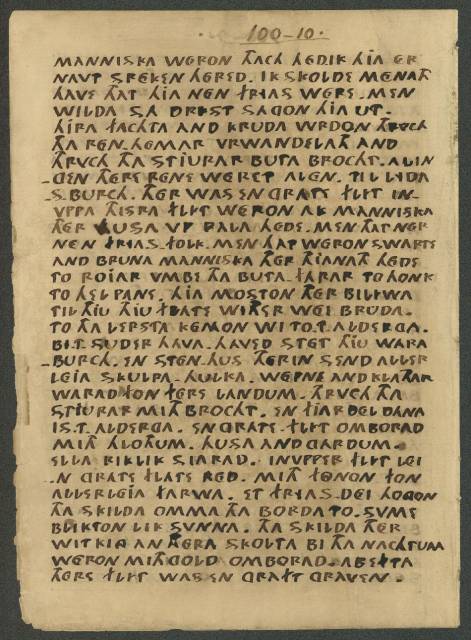 100-10.
MANNISKA WERON THACH HEDIK HIA ER
NAVT SPEKEN HERED. IK SKOLDE MENATH
HAVE THAT HIA NEN FRIAS WERE. MEN
WILDA SA DREST SAGON HIA UT.
HIRA FACHTA AND KRUDA WRDON THRVCH
THA REN. HEMAR VRWANDELATH AND
THRVCH THA STIURAR BUTA BROCHT. ALIN
GEN THERE RENE WERET ALEN. TIL LYDA
S.BURCH. THER WAS EN GRATE FLIT IN
VPPA THISRA FLIT WERON AK MANNISKA
THER HUSA VP PALA HEDE. MEN THAT NER
NEN FRIAS FOLK. MEN HAT WERON SWARTE
AND BRUNA MANNISKA THER THIANATH HEDE
TO ROIAR VMBE THA BUTA FARAR TO HONK
TO HELPANE. HIA MOSTON THER BILIWA
TIL THIU THIU FLATE WITHER WEI BRUDA.
TO THA LERSTA KEMON WI TO.T. ALDERGA.
BI.T SUDER HAVA. HAVED STET THIU WARA
BURCH. EN STEN.HUS THERIN SEND ALLER
LEIA SKULPA. HULKA. WEPNE AND KLATHAR
WARAD FON FERE LANDUM. THRVCH THA
STIURAR MITH BROCHT. EN FIARDEL DANA
IS.T. ALDERGA. EN GRATE FLIT OMBORAD
MITH HLOTHUM. HUSA AND GARDUM.
ELLA RIKLIK SIARAD. INVPPER FLIT LEI
N GRATE FLATE RED. MITH FONON FON
ALLERLEIA FARWA. ET FRIAS.DEI HOGON
THA SKILDA OMMA THA BORDA TO. SVME
BLIKTON LIK SVNNA. THA SKILDA THER
WITKIG AN THERA SKOLTA BI THA NACHTUM
WERON MITH GOLD OMBORAD. ABEFTA
THERE FLIT WAS EN GRAFT GRAVEN.